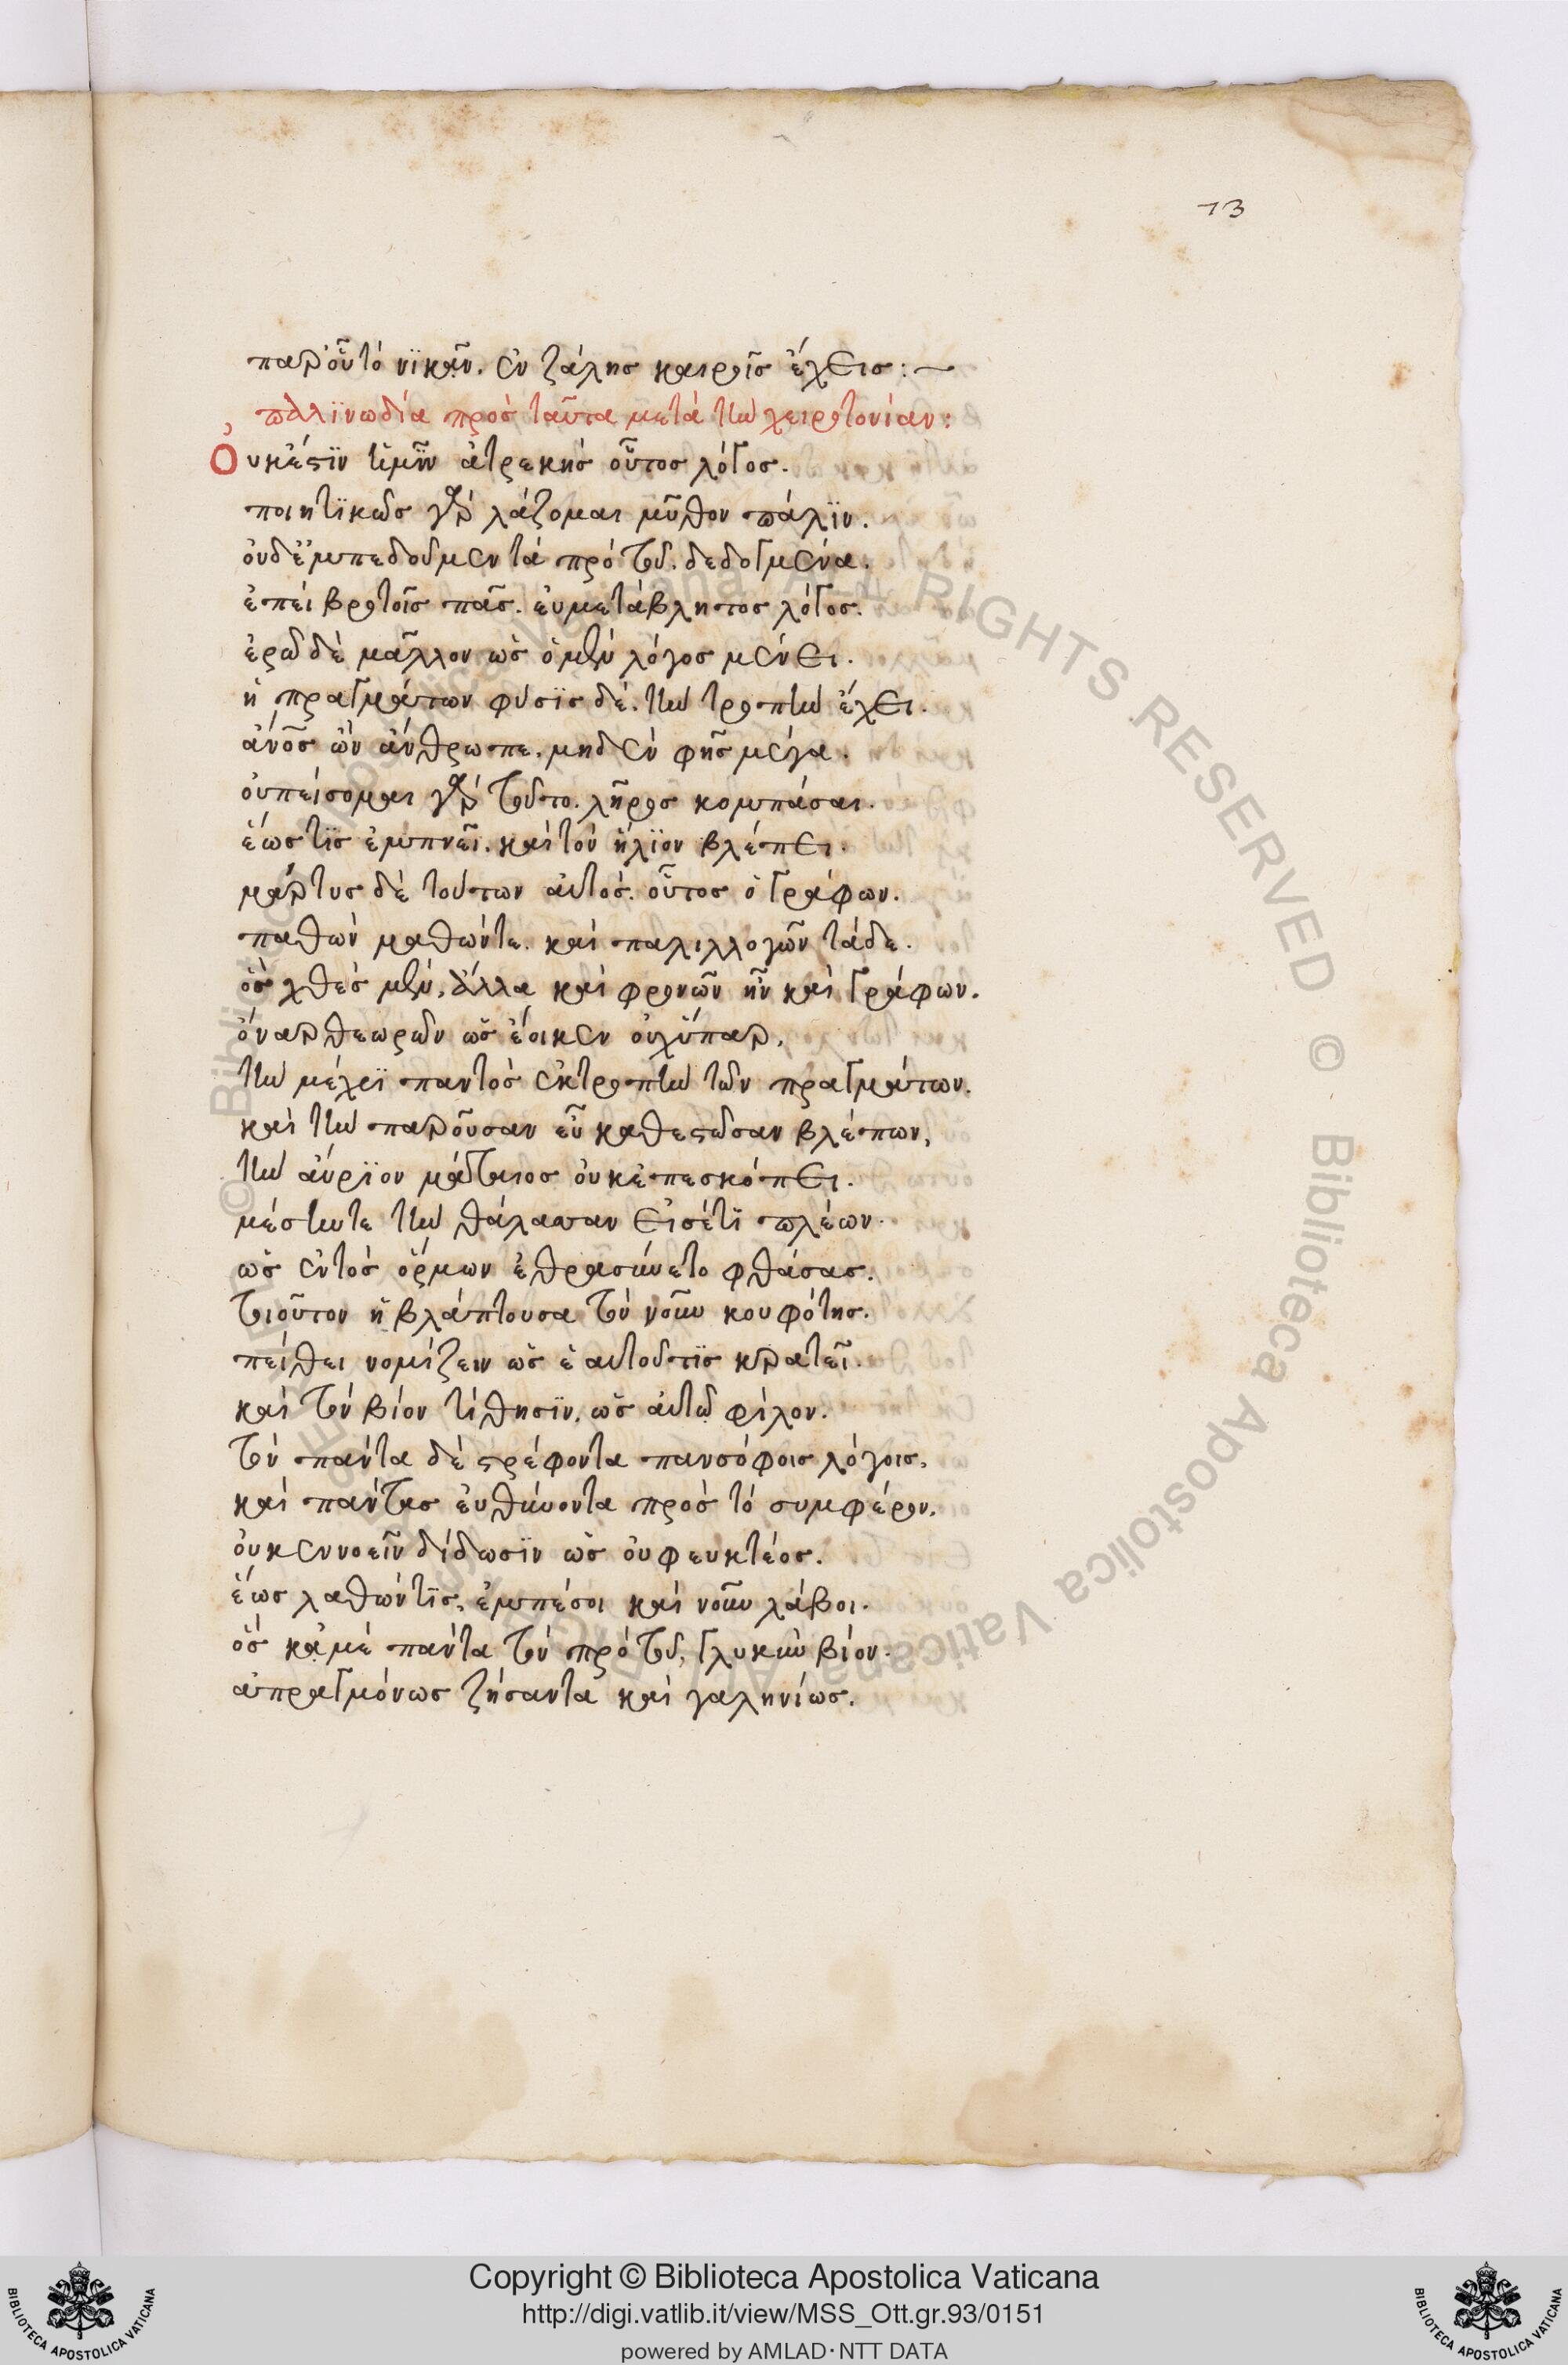 73
παρ' οὗ τὸ νικᾶν, ἐν ζάλης καιροῖς ἔχεις:~
παλϊνωδία πρὸς ταῦτα μετὰ τὴν χειροτονίαν:
Οὐκέστϊν ἡμῖν ἀτρεκὴς οὗτος λόγος.
ποιητϊκῶς γὰρ λάζομαι μῦθον πάλϊν.
οὐδ' ἐμπεδοῦμεν τὰ πρὸ τοῦ, δεδογμένα.
ἐπεὶ βροτοῖς πᾶς, εὐμετάβλητος λόγος.
ἐρῶ δὲ μᾶλλον ὡς ὁ μὲν λόγος μένει.
ἡ πραγμάτων φύσϊς δὲ, τὴν τροπὴν ἔχει.
ἀνοσ ὢν ἄνθρωπε, μηδὲν φῇς μέγα.
οὐ πείσομαι γὰρ τοῦτο, λῆρος κομπάσαι.
ἕως τϊς ἐμπνεῖ, καὶ τὸν ἥλϊον βλέπει.
μάρτυς δὲ τούτων αὐτὸς, οὗτος ὁ γράφων.
παθών μαθών τε, καὶ παλιλλογῶν τάδε.
ὃς χθὲς μὲν, ἄλλα καὶ φρονῶν ἦν καὶ γράφων.
ὄναρ θεωρῶν ὡς ἔοικεν οὐχ ὕπαρ,
τὴν μέχρϊ παντὸς ἐκτροπὴν τῶν πραγμάτων.
καὶ τὴν παροῦσαν εὖ καθεστῶσαν βλέπων,
τὴν αὔρϊον μάταιος οὐκ ἐπεσκόπει.
μέσην τε τὴν θάλασσαν εἰσέτϊ πλέων.
ὡς ἐντὸς ὅρμων ἐθρασύνετο φθάσας.
τοιοῦτον ἡ βλάπτουσα τὸν νοῦν κουφότης.
πείθει νομίζειν ὡς ἑαυτοῦ τϊς κρατεῖ.
καὶ τὸν βίον τίθησϊν, ὡς αὐτῷ φίλον.
τὸν πάντα δὲ στρέφοντα πανσόφοις λόγοις,
καὶ πάντας εὐθύνοντα πρὸς τὸ συμφέρον.
οὐκ ἐννοεῖν δίδωσϊν ὡς οὐ φευκτέος.
ἕως λαθών τϊς, ἐμπέσοι καὶ νοῦν λάβοι.
ὃς κἀμὲ πάντα τὸν πρὸ τοῦ, γλυκὺν βίον.
ἀπραγμόνως ζήσαντα καὶ γαληνίως.
© Biblioteca Apostolica Vaticana ALL RIGHTS RESERVED © Biblioteca Apostolica Vaticana ALL RIGHTS RESERVED
Copyright © Biblioteca Apostolica Vaticana
http://digi.vatlib.it/view/MSS_Ott.gr.93/0151
powered by AMLAD·NTT DATA
BIBLIOTECA APOSTOLICA VATICANA
BIBLIOTECA APOSTOLICA VATICANA